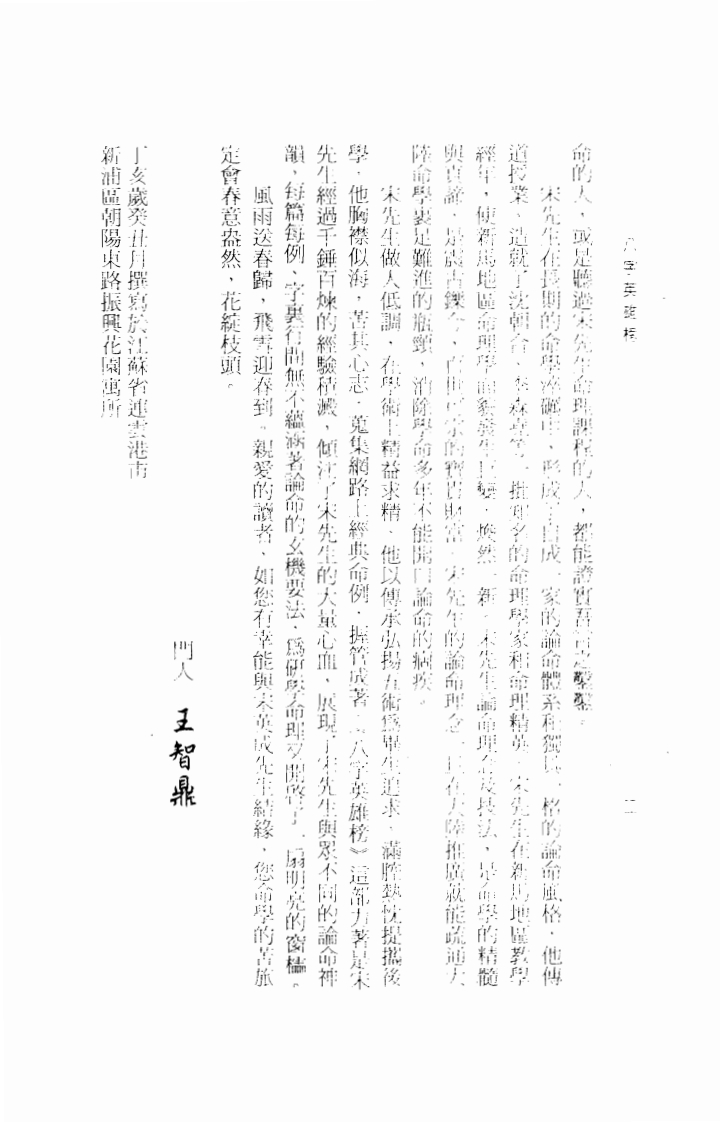 八字英雄榜
二
命的人，或是聽過宋先生命理課程的人，都能證實吾言之鑿鑿。
宋先生在長期的命學淬礪中，形成了自成一家的論命體系和獨具一格的論命風格，他傳
道授業、造就了沈朝合、李森堂等一批知名的命理學家和命理精英。宋先生在新馬地區教學
經年，使新馬地區命理學面貌發生巨變，煥然一新。宋先生論命理念及技法，是命學的精髓
與真諦，是震古鑠今，百世可宗的寶貴財富。宋先生的論命理念一旦在大陸推廣就能疏通大
陸命學裹足難進的瓶頸，消除學命多年不能開口論命的病疾。
宋先生做人低調，在學術上精益求精，他以傳承弘揚五術為畢生追求，滿腔熱忱提攜後
學，他胸襟似海，苦其心志，蒐集網路上經典命例，握管成著《八字英雄榜》這部力著是宋
先生經過千錘百煉的經驗積澱，傾注了宋先生的大量心血，展現了宋先生與眾不同的論命神
韻，每篇每例，字裏行間無不蘊涵著論命的玄機要法，為研學命理又開啓了一扇明亮的窗櫺。
風雨送春歸，飛雪迎春到。親愛的讀者，如您有幸能與宋英成先生結緣，您命學的苦旅
定會春意盎然，花綻枝頭。
門人 王智鼎
丁亥歲癸丑月撰寫於江蘇省連雲港市
新浦區朝陽東路振興花園寓所